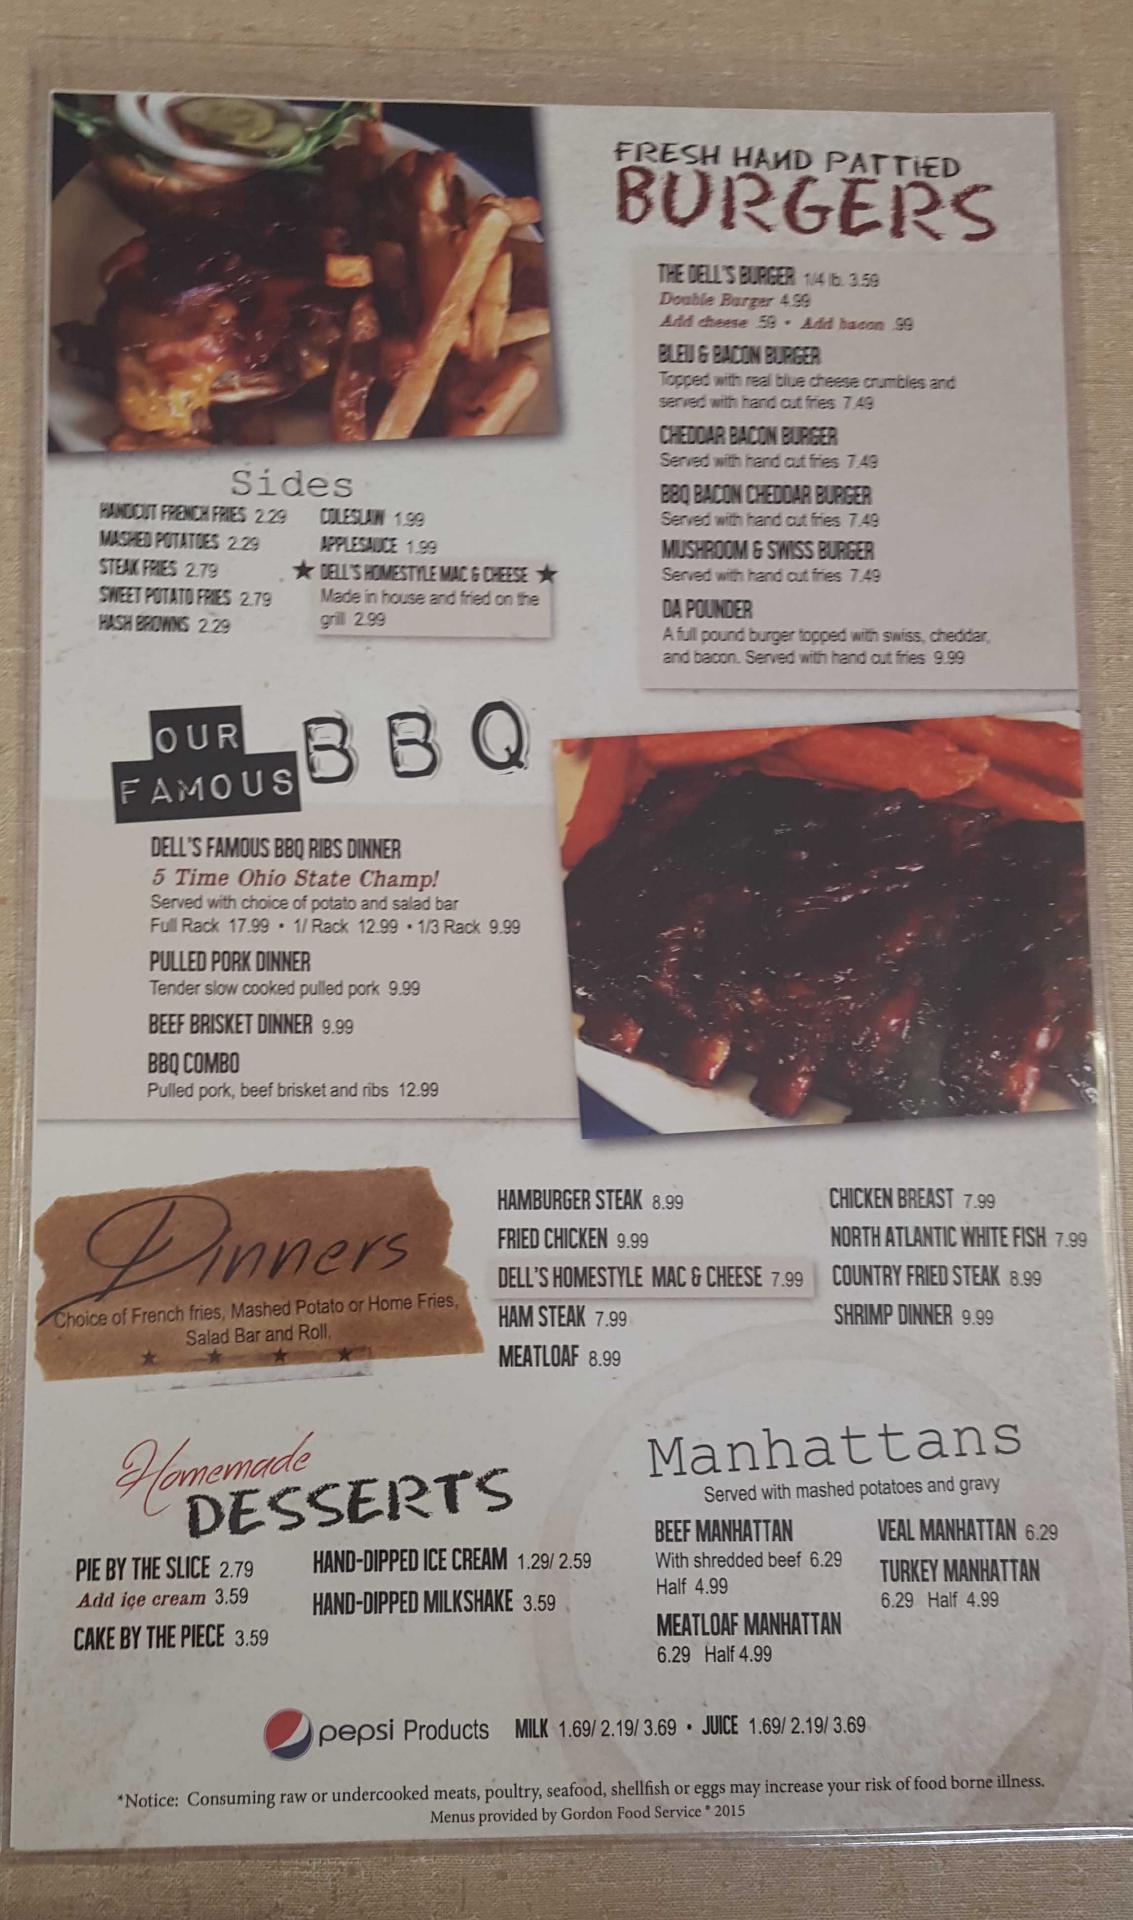 FRESH HAND PATTIED
BURGERS
THE DELL'S BURGER 1/4 lb. 3.59
Double Burger 4.99
Add cheese .59 • Add bacon .99
BLEU & BACON BURGER
Topped with real blue cheese crumbles and
served with hand cut fries 7.49
CHEDDAR BACON BURGER
Served with hand cut fries 7.49
BBQ BACON CHEDDAR BURGER
Served with hand cut fries 7.49
MUSHROOM & SWISS BURGER
Served with hand cut fries 7.49
DA POUNDER
A full pound burger topped with swiss, cheddar,
and bacon. Served with hand cut fries 9.99
Sides
HANDCUT FRENCH FRIES 2.29
MASHED POTATOES 2.29
STEAK FRIES 2.79
SWEET POTATO FRIES 2.79
HASH BROWNS 2.29
COLESLAW 1.99
APPLESAUCE 1.99
★ DELL'S HOMESTYLE MAC & CHEESE ★
Made in house and fried on the
grill 2.99
OUR
FAMOUS
BBQ
DELL'S FAMOUS BBQ RIBS DINNER
5 Time Ohio State Champ!
Served with choice of potato and salad bar
Full Rack 17.99 • 1/ Rack 12.99 • 1/3 Rack 9.99
PULLED PORK DINNER
Tender slow cooked pulled pork 9.99
BEEF BRISKET DINNER 9.99
BBQ COMBO
Pulled pork, beef brisket and ribs 12.99
Dinners
Choice of French fries, Mashed Potato or Home Fries,
Salad Bar and Roll.
★ ★ ★ ★
HAMBURGER STEAK 8.99
FRIED CHICKEN 9.99
DELL'S HOMESTYLE MAC & CHEESE 7.99
HAM STEAK 7.99
MEATLOAF 8.99
CHICKEN BREAST 7.99
NORTH ATLANTIC WHITE FISH 7.99
COUNTRY FRIED STEAK 8.99
SHRIMP DINNER 9.99
Homemade
DESSERTS
PIE BY THE SLICE 2.79
Add ice cream 3.59
CAKE BY THE PIECE 3.59
HAND-DIPPED ICE CREAM 1.29/ 2.59
HAND-DIPPED MILKSHAKE 3.59
Manhattans
Served with mashed potatoes and gravy
BEEF MANHATTAN
With shredded beef 6.29
Half 4.99
MEATLOAF MANHATTAN
6.29 Half 4.99
VEAL MANHATTAN 6.29
TURKEY MANHATTAN
6.29 Half 4.99
pepsi Products MILK 1.69/ 2.19/ 3.69 • JUICE 1.69/ 2.19/ 3.69
*Notice: Consuming raw or undercooked meats, poultry, seafood, shellfish or eggs may increase your risk of food borne illness.
Menus provided by Gordon Food Service ® 2015